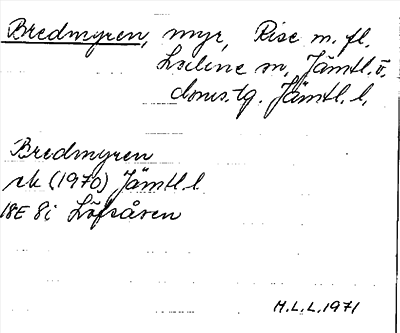 Bredmyren, myr, Rise m. fl.
Lselme sn, Jämtl. v.
doms. tg. Jämtl. l.
Bredmyren
ek (1970) Jämtl l
18E 8i Löfsåsen
H.L.L. 1971